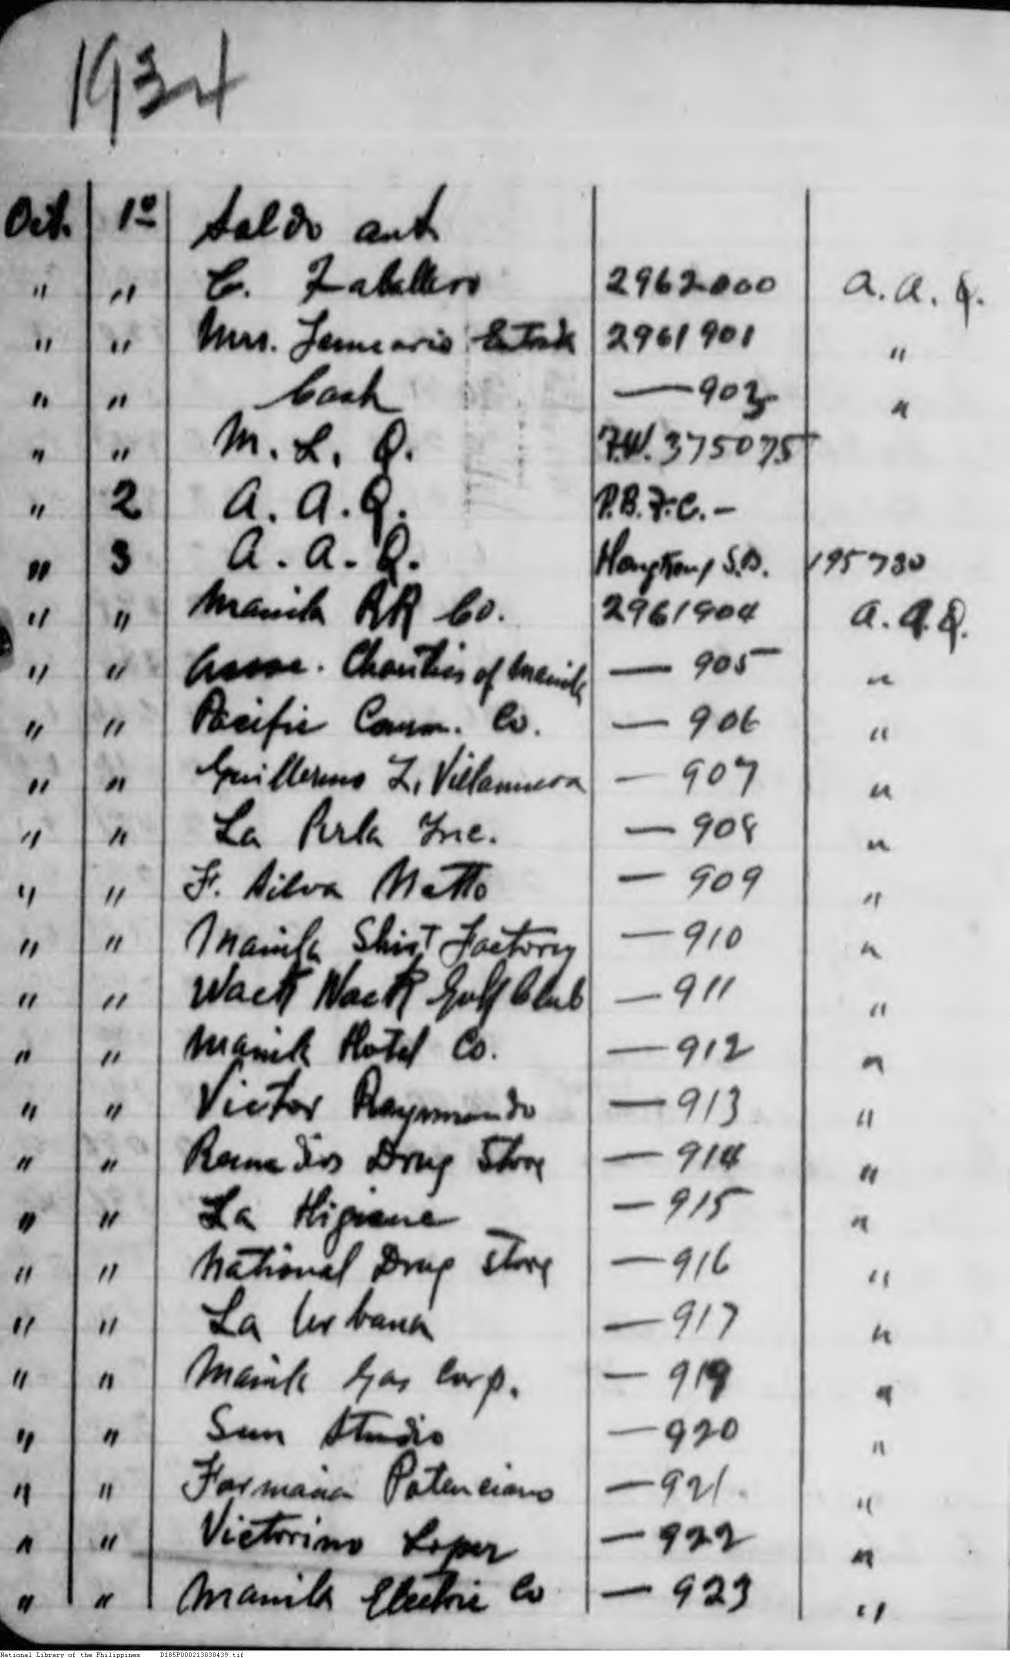 1934
Oct. 1º Saldo ant.
" " C. Zaballero 2962000 A.A.Q.
" " Mrs. Januario 2961901 "
" " Cash — 903 "
" " M. L. Q. F.W. 375075
" 2 A. A. Q. P.B.F.C. —
" 3 A. A. Q. Hongkong S.B. 195730
" " Manila RR Co. 2961904 A.A.Q.
" " Assoc. Charities of Manila — 905 "
" " Pacific Comm. Co. — 906 "
" " Guillermo Z. Villanueva — 907 "
" " La Perla Inc. — 908 "
" " F. Silva Netto — 909 "
" " Manila Shirt Factory — 910 "
" " Wack Wack Golf Club — 911 "
" " Manila Hotel Co. — 912 "
" " Victor Raymundo — 913 "
" " Remedios Drug Store — 914 "
" " La Higiene — 915 "
" " National Drug Store — 916 "
" " La Urbana — 917 "
" " Manila Gas Corp. — 919 "
" " Sun Studio — 920 "
" " Farmacia Potenciano — 921. "
" " Victorino Lopez — 922 "
" " Manila Electric Co — 923 "
National Library of the Philippines D185P000213038439.tif